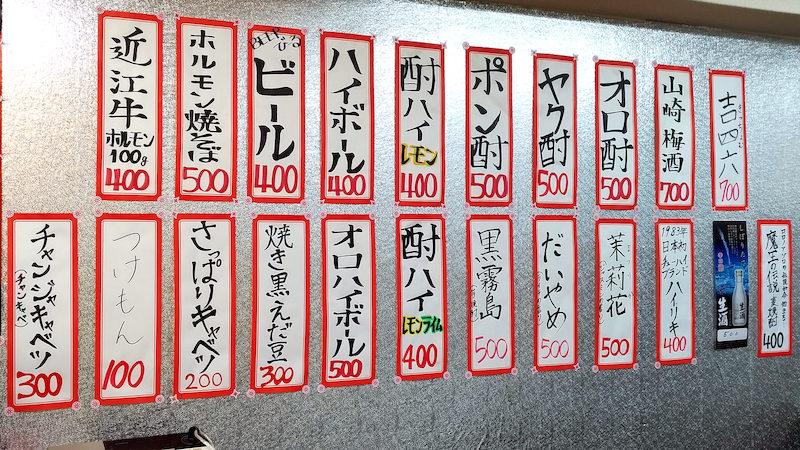 近江牛
ホルモン
100g
400
ホルモン焼そば
500
ビール
400
ハイボール
400
酎ハイ
レモン
400
ポン酎
500
ヤク酎
500
オロ酎
500
山崎梅酒
700
吉四六
700
チャンジャキャベツ
(チャンキャベ)
300
つけもん
100
さっぱりキャベツ
200
焼き黒えだ豆
300
オロハイボール
500
酎ハイ
レモンライム
400
黒霧島
500
だいやめ
500
茉莉花
500
1983年
日本初
チューハイ
ブランド
ハイリキ
400
しぼりたて
生酒
500
魔王の伝説
麦焼酎
400